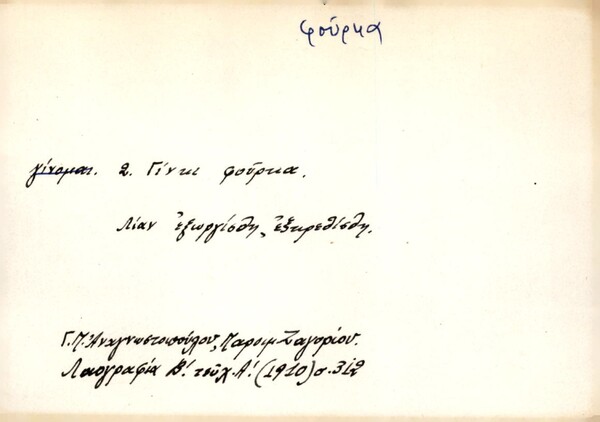 φούρκα
γίνομαι. 2. Γίνκι φούρκα.
Λίαν ἐξωργίσθη, ἐξηρεθίσθη.
Γ. Π. Ἀναγνωστοπούλου, Παροιμ. Ζαγορίου.
Λαογραφία Β! τεῦχ. Α! (1910) σ. 312